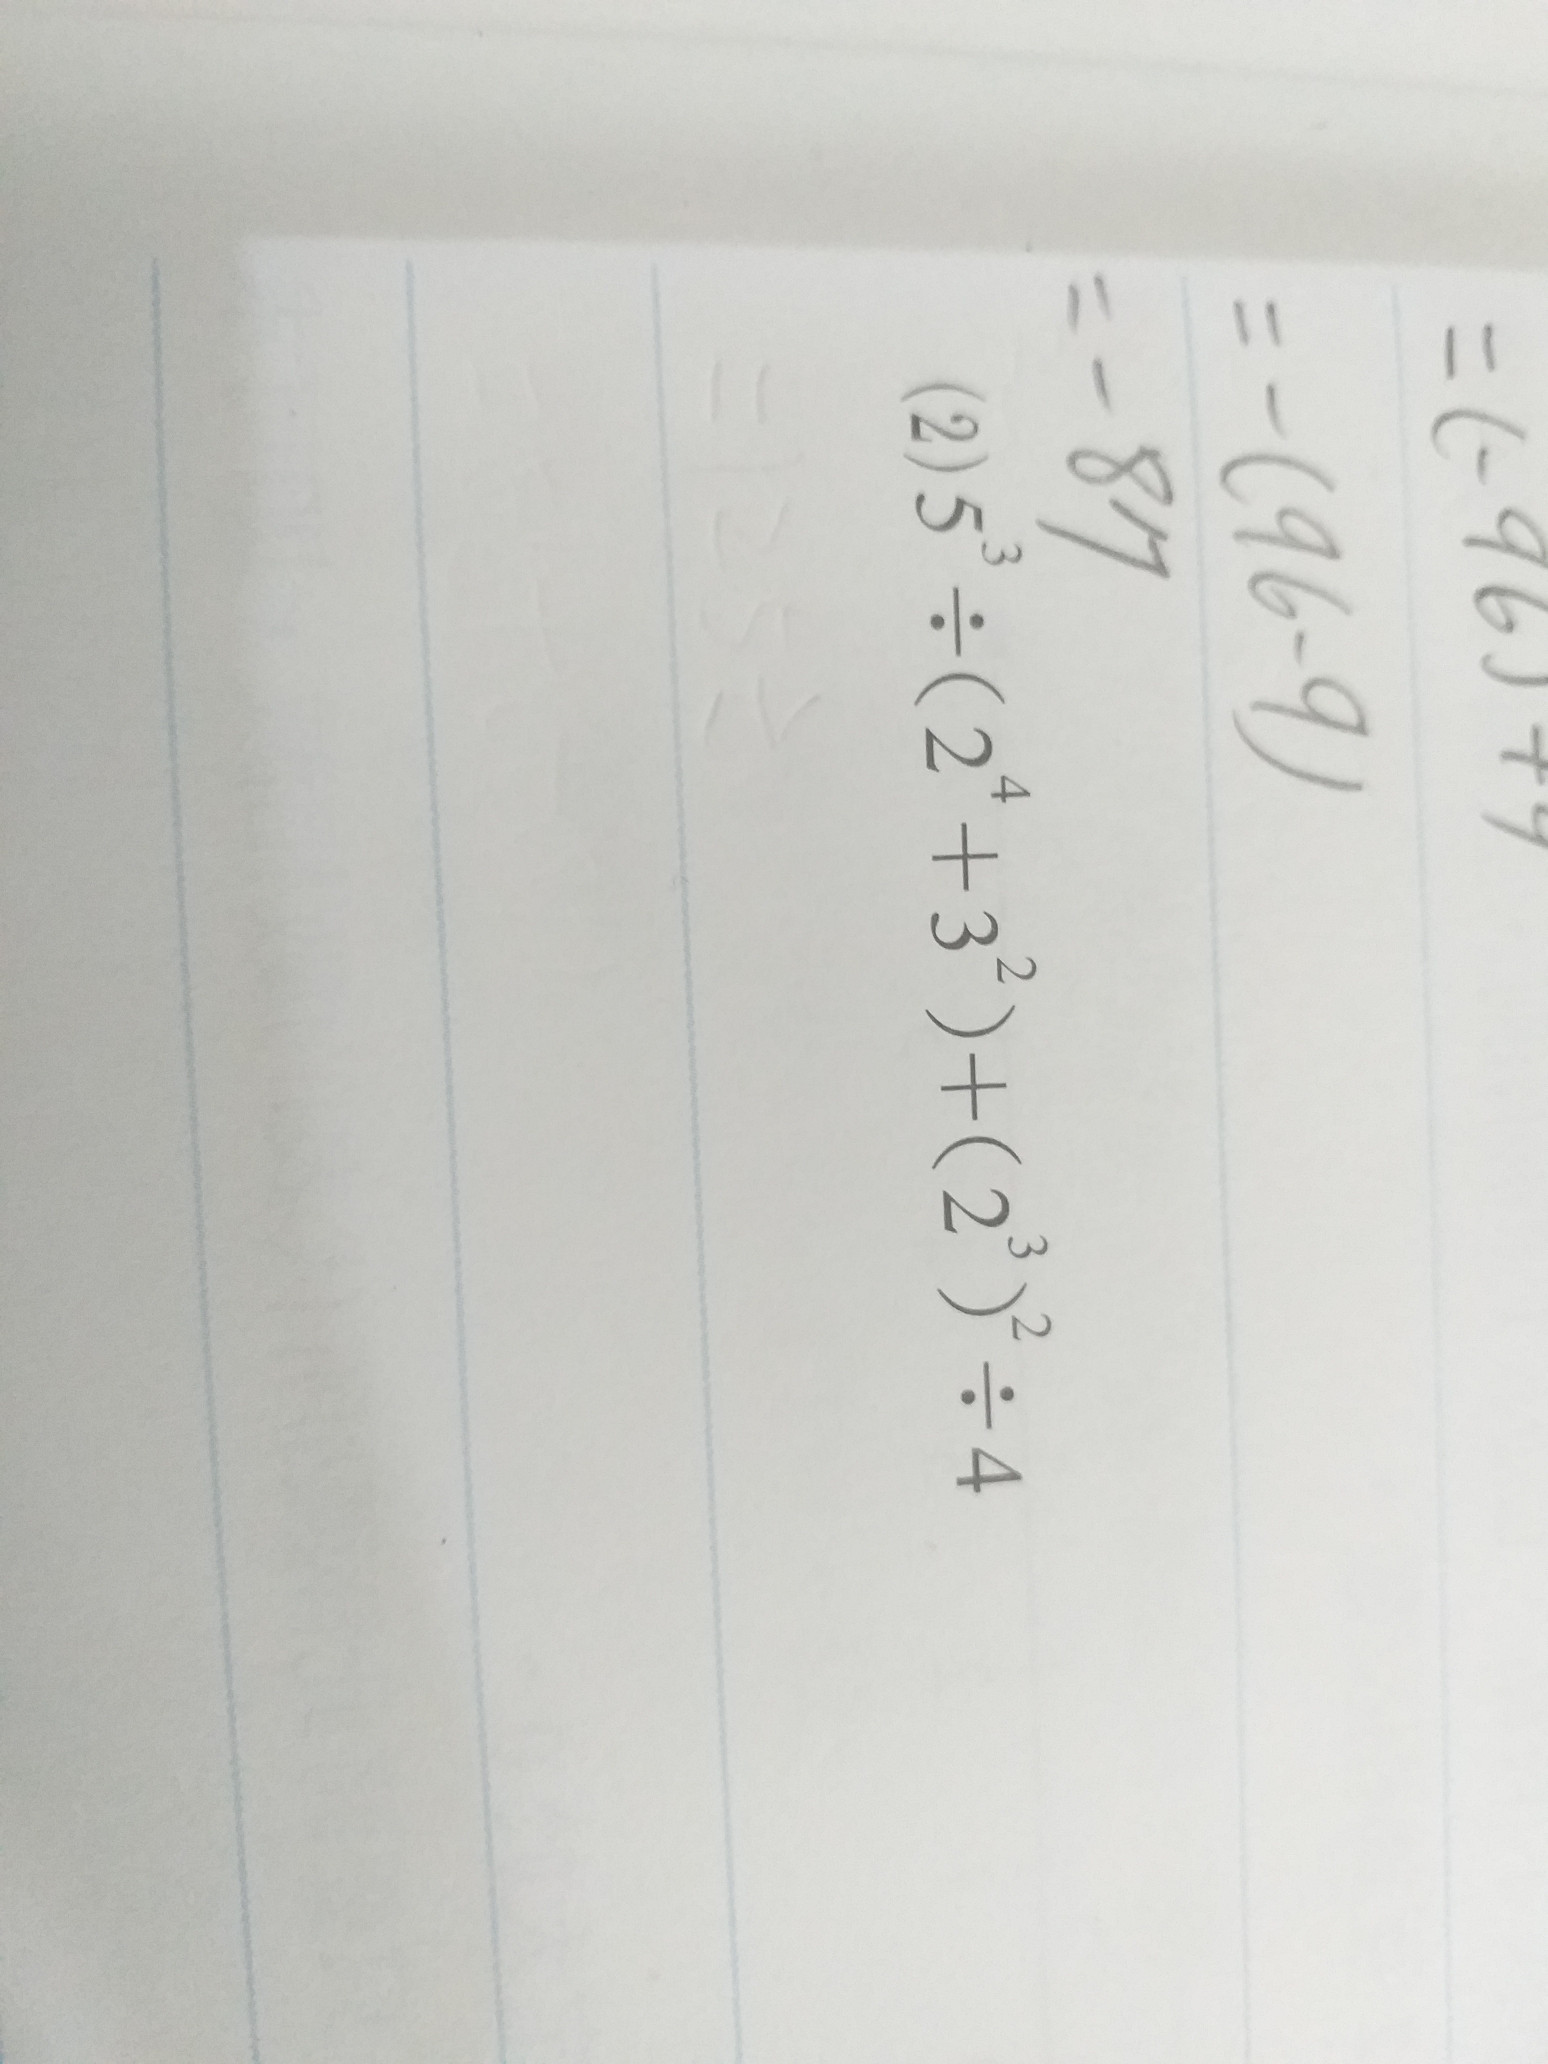 = (-96) + 9
= - (96-9)
= - 87
(2) 5³ ÷ (2⁴ + 3²) + (2³)² ÷ 4